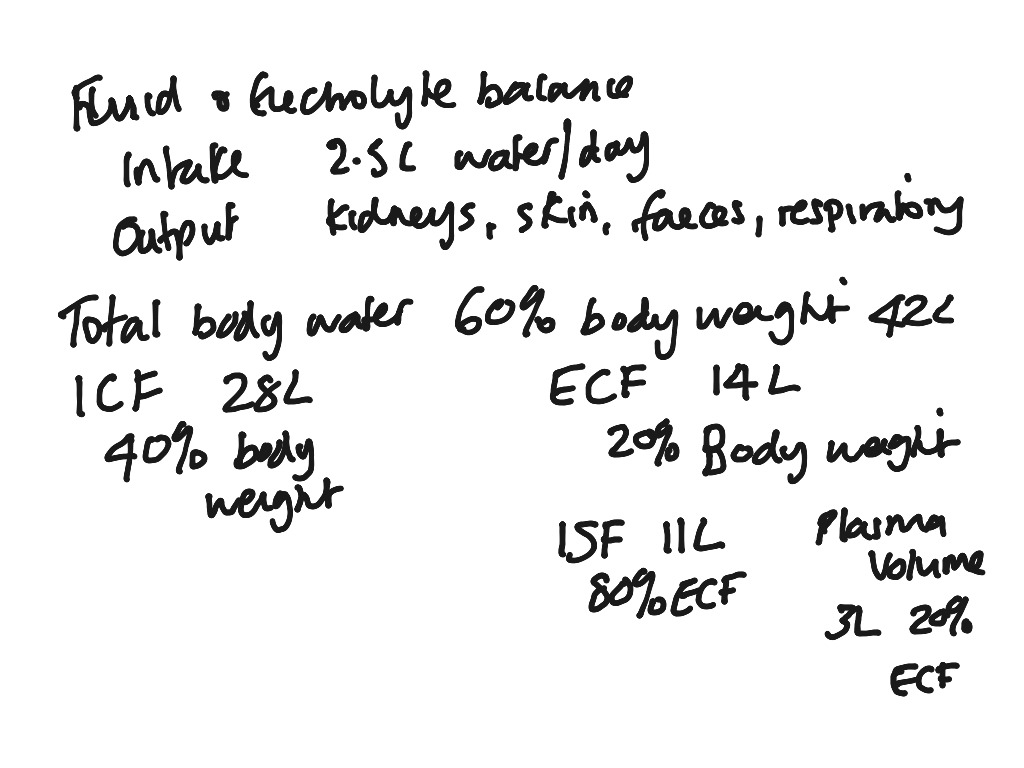 Fluid & Electrolyte balance
Intake 2.5L water/day
Output kidneys, skin, faeces, respiratory
Total body water 60% body weight 42L
ICF 28L ECF 14L
40% body weight 20% Body weight
ISF 11L Plasma volume
80% ECF 3L 20% ECF